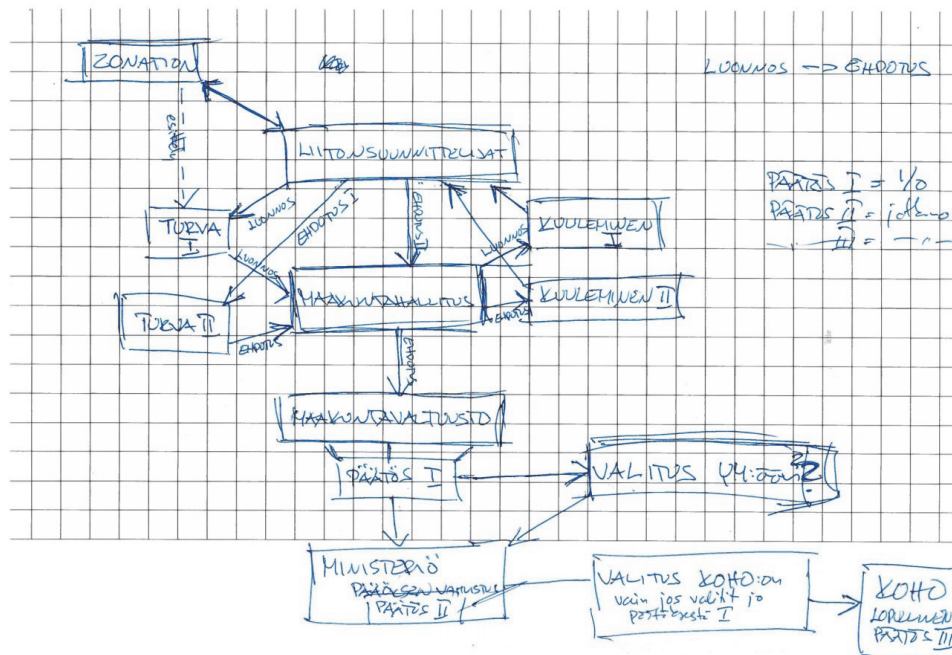 ZONATION
LUONNOS -> EHDOTUS
esittely
LIITONSUUNNITTELIJAT
PÄÄTÖS I = 1/0
PÄÄTÖS II =
III =
TURVA
I
LUONNOS
EHDOTUS I
EHDOTUS II
LUONNOS
KUULEMINEN
I
LUONNOS
MAAKUNTAHALLITUS
KUULEMINEN II
EHDOTUS
TURVA II
EHDOTUS
EHDOTUS
MAAKUNTAVALTUUSTO
PÄÄTÖS I
VALITUS YM:öön ??
MINISTERIÖ
PÄÄTÖS II
VALITUS KOHO:on
vain jos valitit jo
päätöksestä I
KOHO
LOPULLINEN
PÄÄTÖS III